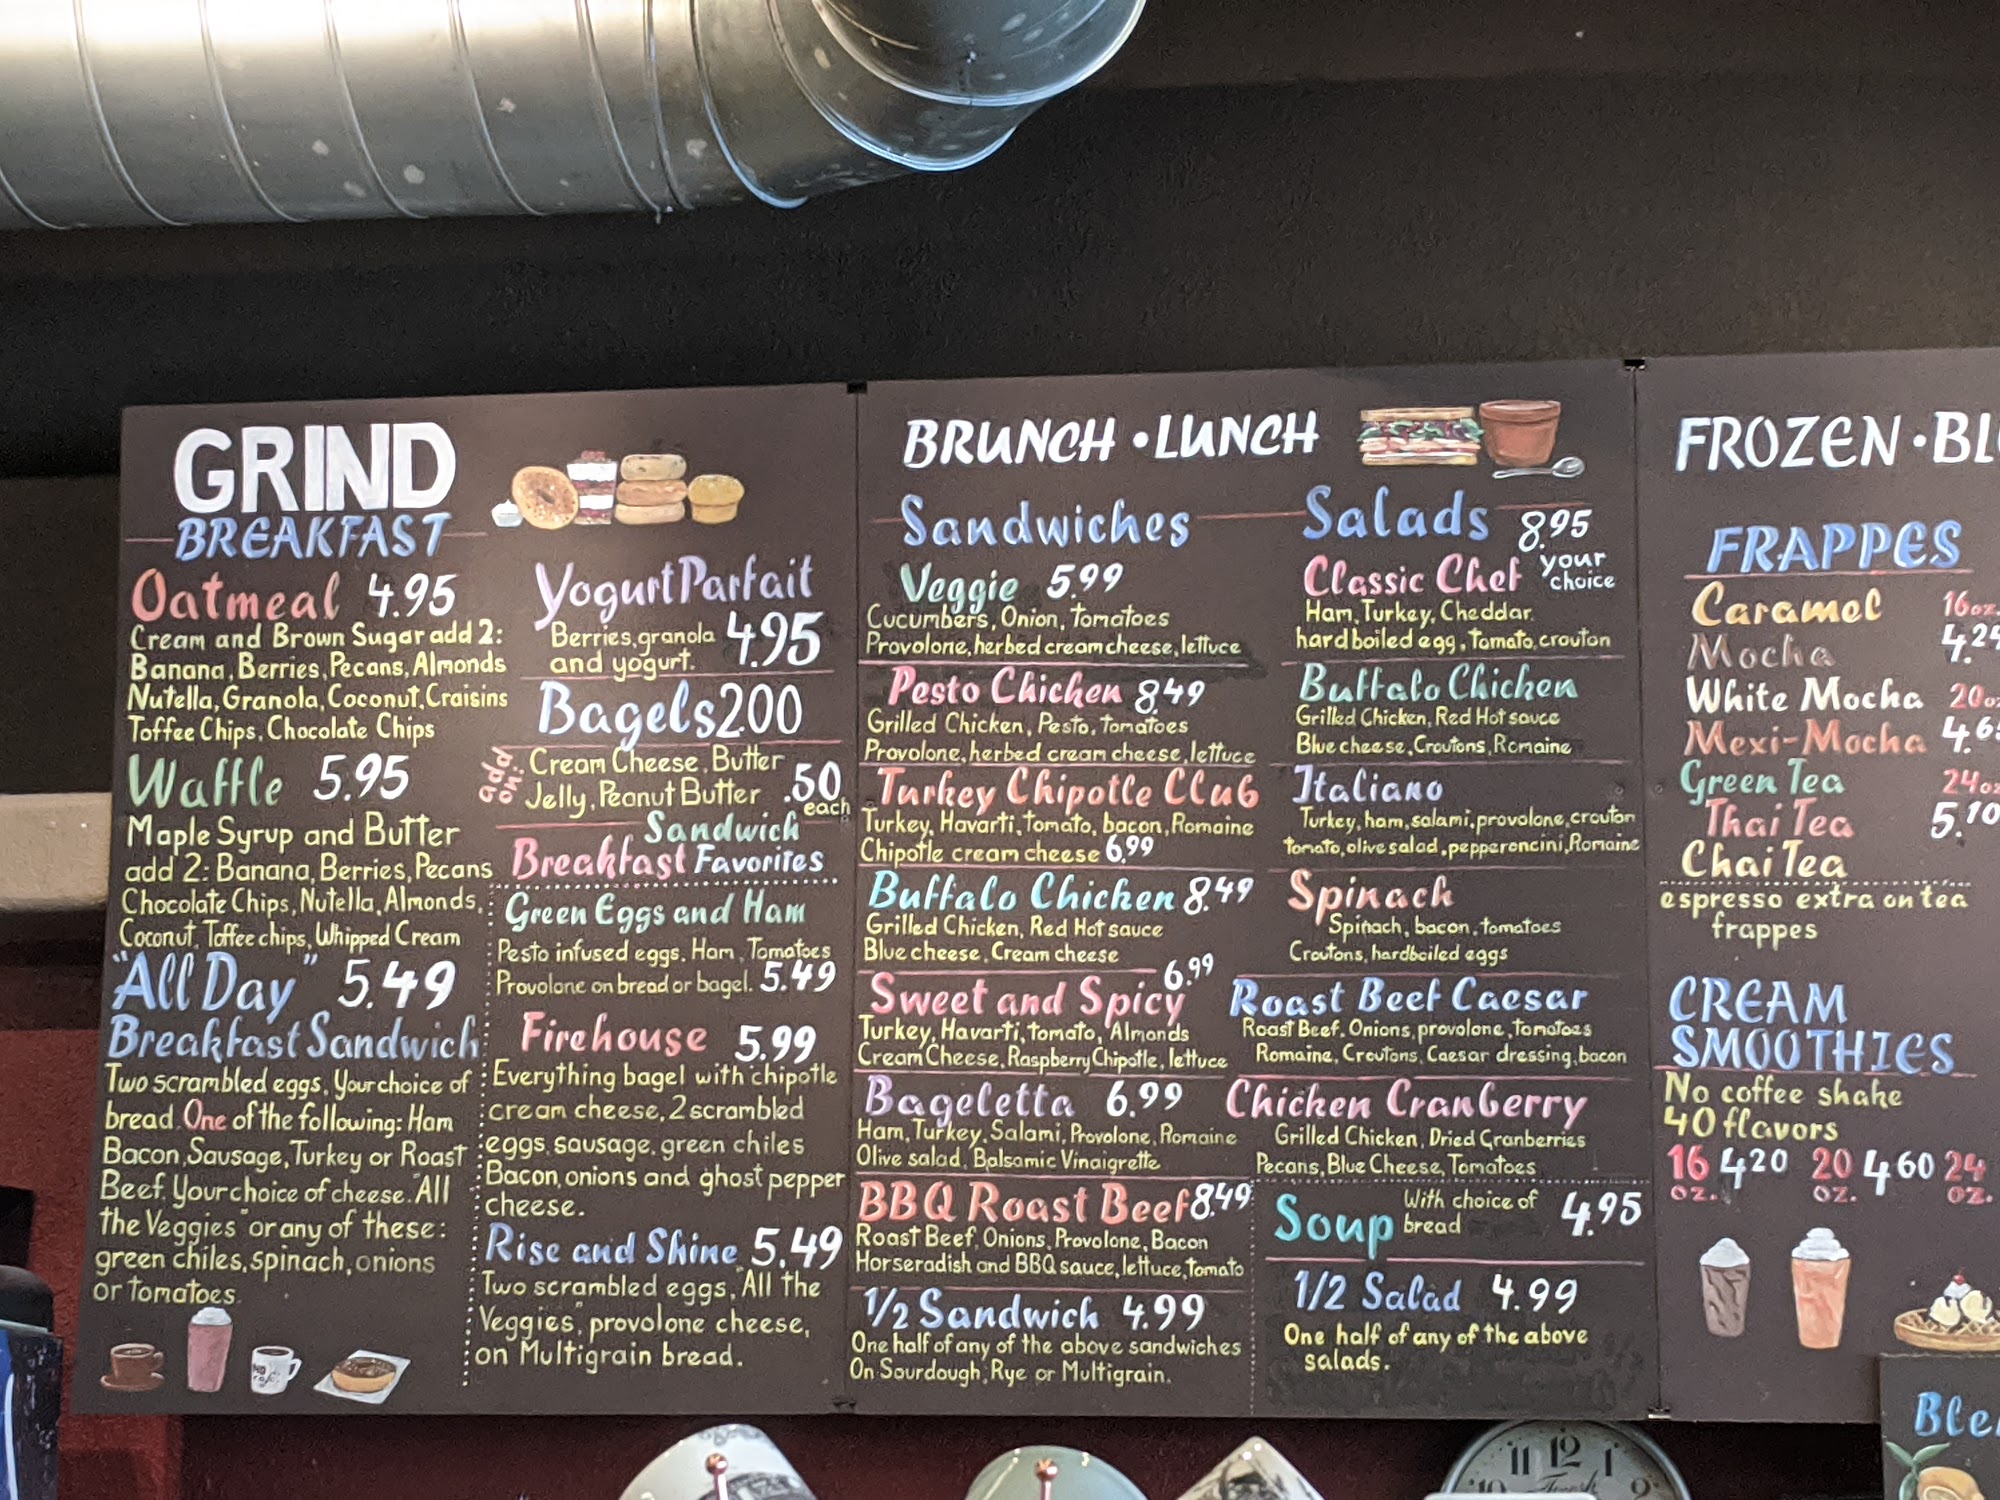 GRIND
BREAKFAST
Oatmeal 4.95
Cream and Brown Sugar add 2:
Banana, Berries, Pecans, Almonds
Nutella, Granola, Coconut, Craisins
Toffee Chips, Chocolate Chips
Waffle 5.95
Maple Syrup and Butter
add 2: Banana, Berries, Pecans
Chocolate Chips, Nutella, Almonds,
Coconut, Toffee chips, Whipped Cream
"All Day" 5.49
Breakfast Sandwich
Two scrambled eggs, Your choice of
bread. One of the following: Ham
Bacon, Sausage, Turkey or Roast
Beef. Your choice of cheese. "All
the Veggies" or any of these:
green chiles, spinach, onions
or tomatoes.
Yogurt Parfait
Berries, granola
and yogurt. 4.95
Bagels 2.00
add on:
Cream Cheese, Butter
Jelly, Peanut Butter .50 each
Sandwich
Breakfast Favorites
Green Eggs and Ham
Pesto infused eggs, Ham, Tomatoes
Provolone on bread or bagel. 5.49
Firehouse 5.99
Everything bagel with chipotle
cream cheese, 2 scrambled
eggs, sausage, green chiles
Bacon, onions and ghost pepper
cheese.
Rise and Shine 5.49
Two scrambled eggs, "All the
Veggies", provolone cheese,
on Multigrain bread.
BRUNCH • LUNCH
Sandwiches
Veggie 5.99
Cucumbers, Onion, Tomatoes
Provolone, herbed cream cheese, lettuce
Pesto Chicken 8.49
Grilled Chicken, Pesto, Tomatoes
Provolone, herbed cream cheese, lettuce
Turkey Chipotle Club
Turkey, Havarti, Tomato, bacon, Romaine
Chipotle cream cheese 6.99
Buffalo Chicken 8.49
Grilled Chicken, Red Hot sauce
Blue cheese, Cream cheese
Sweet and Spicy 6.99
Turkey, Havarti, Tomato, Almonds
Cream Cheese, Raspberry Chipotle, lettuce
Bageletta 6.99
Ham, Turkey, Salami, Provolone, Romaine
Olive salad, Balsamic Vinaigrette
BBQ Roast Beef 8.49
Roast Beef, Onions, Provolone, Bacon
Horseradish and BBQ sauce, lettuce, Tomato
1/2 Sandwich 4.99
One half of any of the above sandwiches
On Sourdough, Rye or Multigrain.
Salads 8.95
your choice
Classic Chef
Ham, Turkey, Cheddar,
hard boiled egg, Tomato, crouton
Buffalo Chicken
Grilled Chicken, Red Hot sauce
Blue cheese, Croutons, Romaine
Italiano
Turkey, ham, salami, provolone, crouton
tomato, olive salad, pepperoncini, Romaine
Spinach
Spinach, bacon, tomatoes
Croutons, hardboiled eggs
Roast Beef Caesar
Roast Beef, Onions, provolone, tomatoes
Romaine, Croutons, Caesar dressing, bacon
Chicken Cranberry
Grilled Chicken, Dried Cranberries
Pecans, Blue Cheese, Tomatoes
Soup With choice of bread 4.95
1/2 Salad 4.99
One half of any of the above
salads.
FROZEN • BL
FRAPPES
Caramel 16oz.
Mocha 4.24
White Mocha 20oz
Mexi-Mocha 4.6
Green Tea 24oz
Thai Tea 5.10
Chai Tea
espresso extra on tea
frappes
CREAM
SMOOTHIES
No coffee shake
40 flavors
16 oz. 4.20 20 oz. 4.60 24 oz.
Ble
11 12 1
10 2